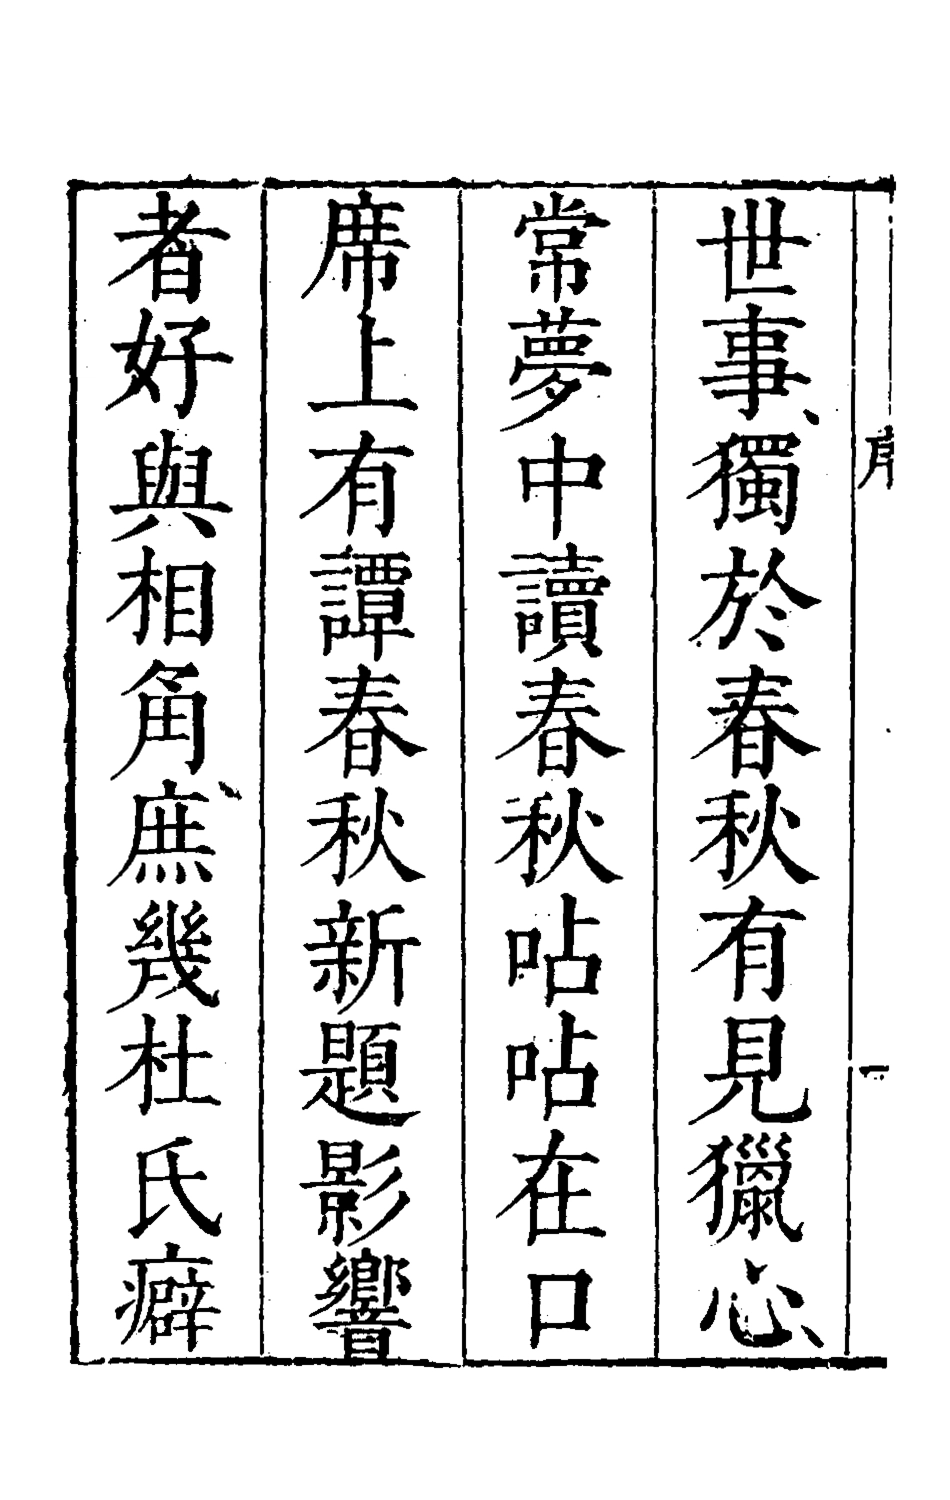 序
一
世事獨於春秋有見獵心
常夢中讀春秋呫呫在口
席上有譚春秋新題影響
者好與相角庶幾杜氏癖